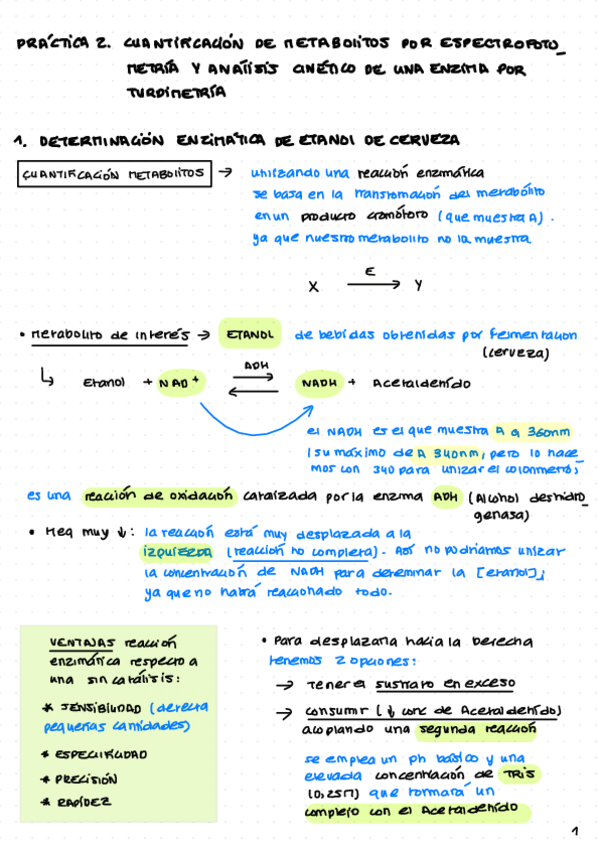 PRÁCTICA 2. CUANTIFICACIÓN DE METABOLITOS POR ESPECTROFOTO_
METRÍA Y ANÁLISIS CINÉTICO DE UNA ENZIMA POR
TURBIMETRÍA
1. DETERMINACIÓN ENZIMÁTICA DE ETANOL DE CERVEZA
CUANTIFICACIÓN METABOLITOS → utilizando una reacción enzimática
se basa en la transformación del metabólito
en un producto cromóforo (que muestra A).
ya que nuestro metabolito no la muestra
E
X → Y
• Metabolito de interés → ETANOL de bebidas obtenidas por fermentación
(cerveza)
ADH
↳ Etanol + NAD+ ⇄ NADH + Acetaldehído
el NADH es el que muestra A a 360nm
(su máximo de A 340nm, pero lo hace_
mos con 340 para utilizar el colorímetro)
es una reacción de oxidación catalizada por la enzima ADH (Alcohol deshidro_
genasa)
• Keq muy ↓: la reacción está muy desplazada a la
izquierda (reacción no completa). Así no podríamos utilizar
la concentración de NADH para determinar la [etanol],
ya que no habrá reaccionado todo.
VENTAJAS reacción
enzimática respecto a
una sin catálisis:
* SENSIBILIDAD (detecta
pequeñas cantidades)
* ESPECIFICIDAD
* PRECISIÓN
* RAPIDEZ
• Para desplazarla hacia la derecha
tenemos 2 opciones:
→ Tener el sustrato en exceso
→ Consumir (↓ conc de Acetaldehído)
acoplando una segunda reacción
se emplea un ph básico y una
elevada concentración de TRIS
(0,25M) que formará un
complejo con el Acetaldehído
1